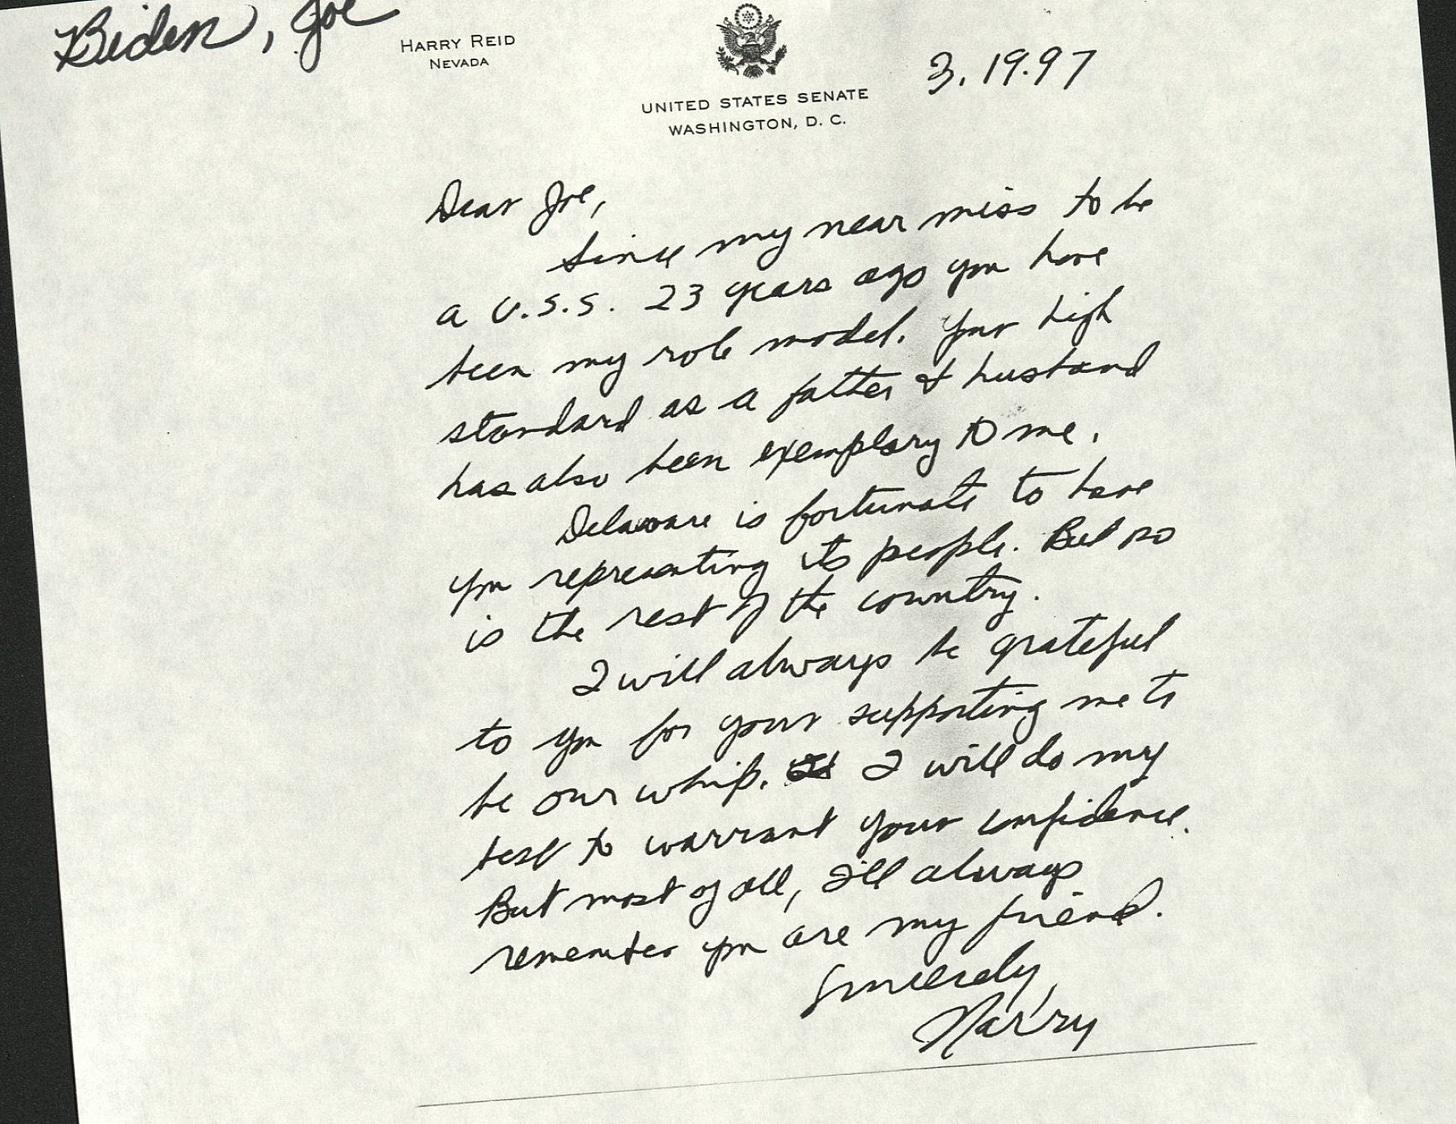 Biden, Joe
HARRY REID
NEVADA
UNITED STATES SENATE
WASHINGTON, D. C.
3.19.97
Dear Joe,
Since my near miss to be
a U.S.S. 23 years ago you have
been my role model. Your high
standard as a father & husband
has also been exemplary to me.
Delaware is fortunate to have
you representing its people. But so
is the rest of the country.
I will always be grateful
to you for your supporting me to
be our whip. I will do my
best to warrant your confidence.
But most of all, I'll always
remember you are my friend.
Sincerely,
Harry